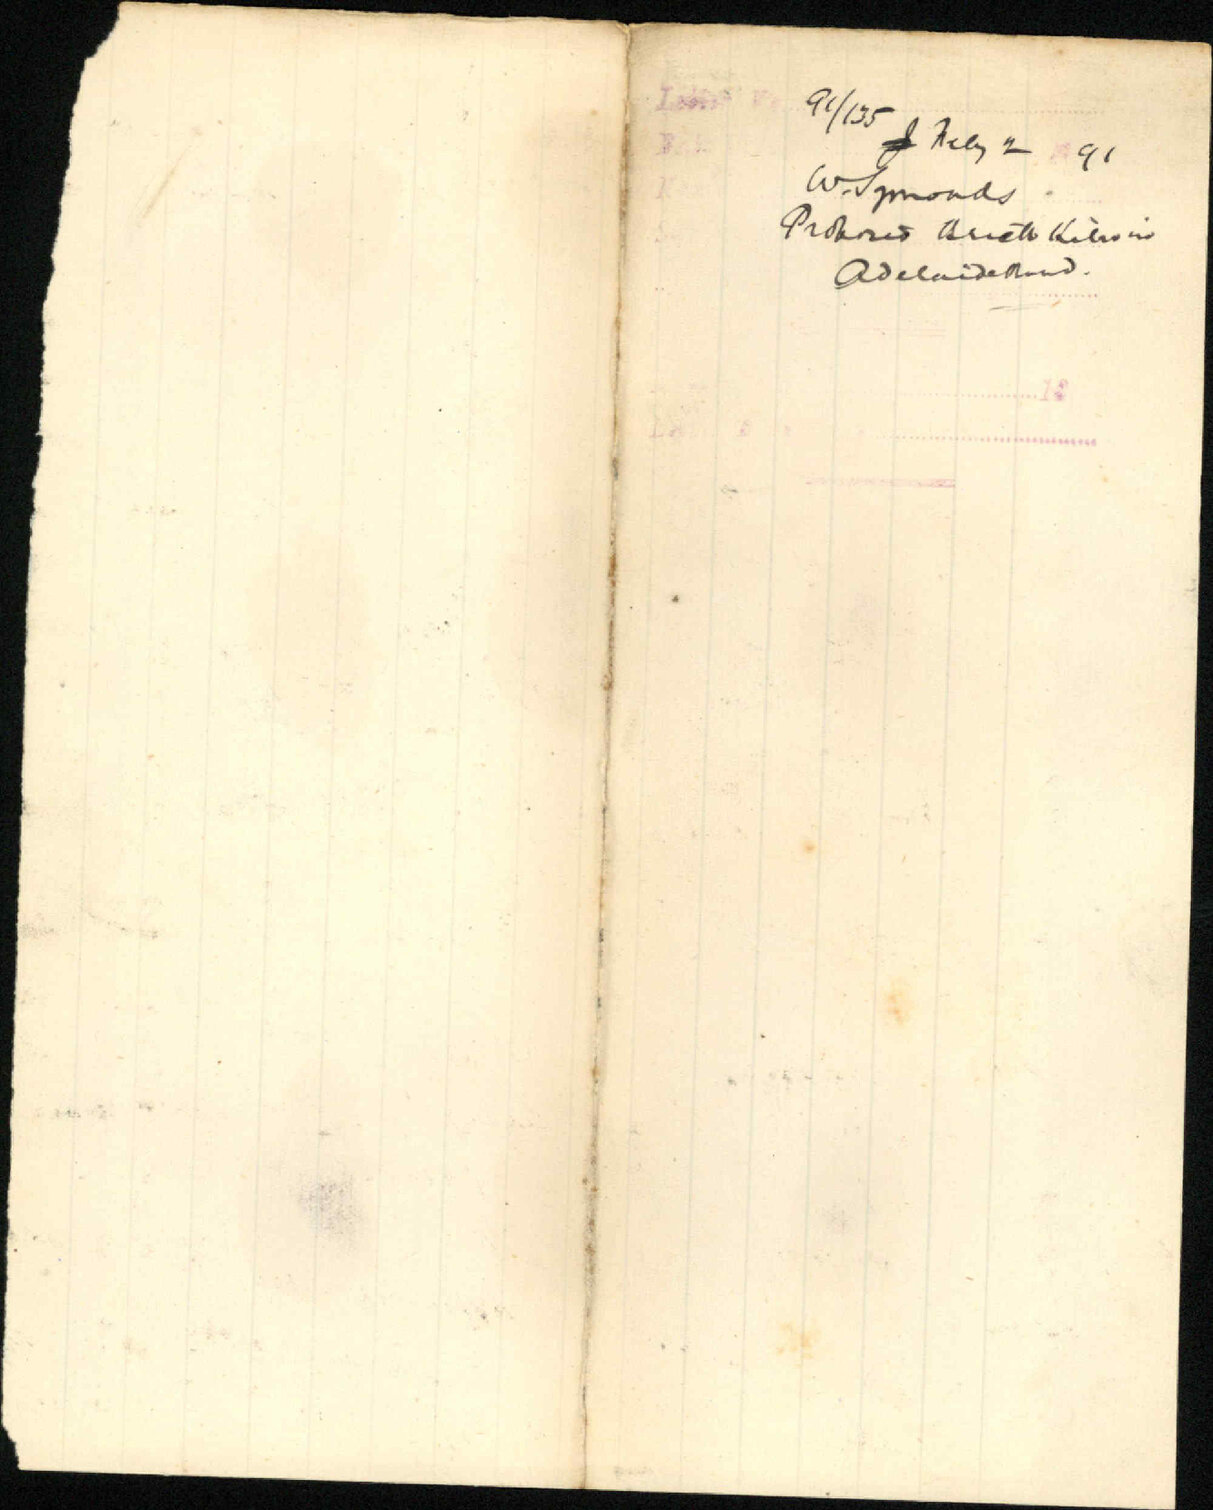 91/135
Feby 2 91
W. Symonds
Proposed Brick Kiln in
Adelaide Road.
18